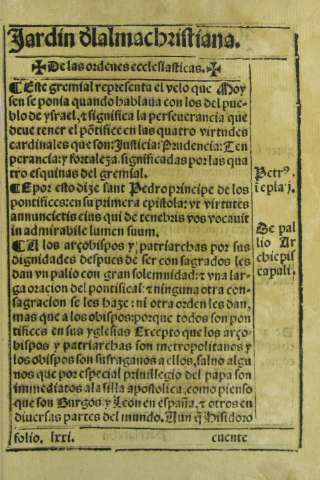 Jardin d̄lalma christiana.
✠De las ordenes ecclesiasticas.✠
¶Este gremial representa el velo que Moy
sen se ponia quando hablaua con los del pue-
blo de ysrael, ⁊ significa la perseuerancia que
deue tener el põtifice en las quatro virtudes
cardinales que son: Justicia: Prudencia: Tẽ
perancia: y fortaleza. significadas por las qua
tro esquinas del gremial.
¶E por esto dize sant Pedro principe de los
pontifices: en su primera epistola: vt virtutes
annuncietis eius qui de tenebris vos vocauit
in admirabile lumen suum.
¶A los arçobispos y patriarchas por sus
dignidades despues de ser consagrados les
dan vn palio con gran solemnidad: ⁊ vna lar-
ga oracion del pontifical: ⁊ ninguna otra con-
sagracion se les haze: ni otra orden les dan,
mas que a los obispos: porque todos son pon
tifices en sus yglesias Excepto que los arço-
bispos y patriarchas son metropolitanos y
los obispos son sufraganos a ellos, saluo algu
nos que por especial priuillegio del papa son
immediatos a la silla apostolica, como pienso
que son Burgos y Leon en españa, ⁊ otros en
diuersas partes del mundo. Aun q̃ Hisidoro
Petrꝰ.
i epla.j.
De pal
lio Ar
chiepis
capali.
folio. lxxi.
cuente